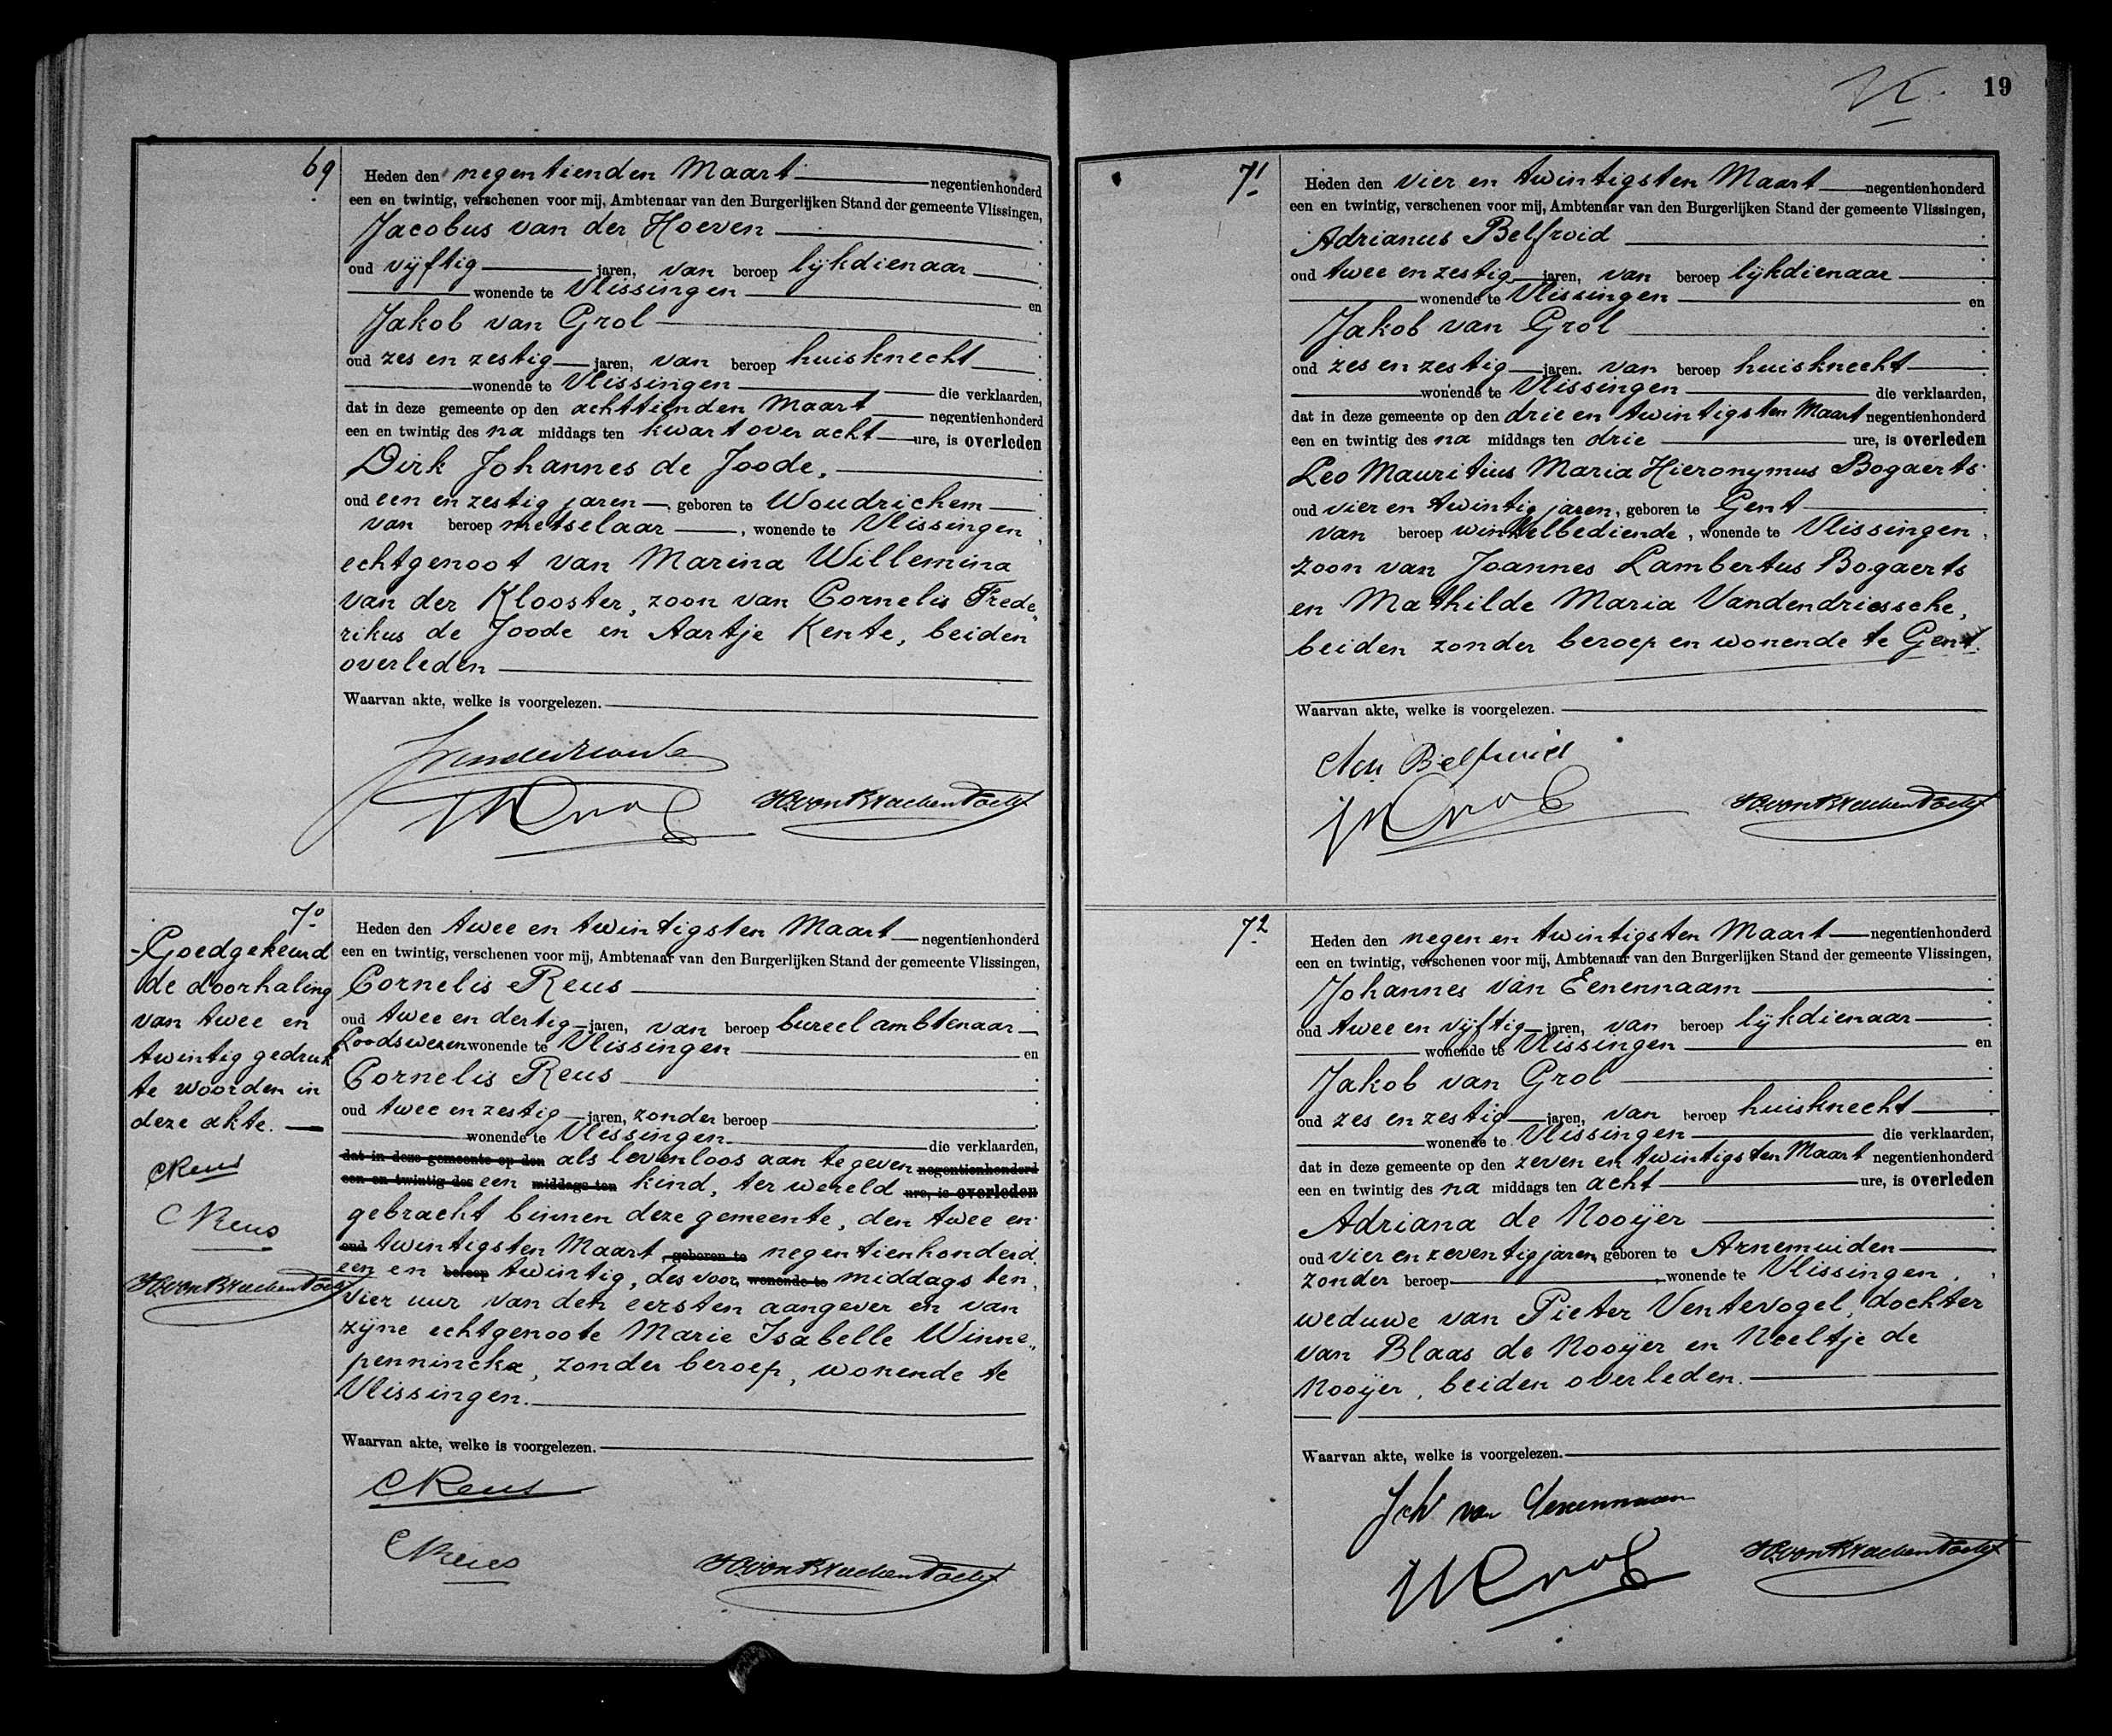 19
69
Heden den negentienden Maart negentienhonderd
een en twintig, verschenen voor mij, Ambtenaar van den Burgerlijken Stand der gemeente Vlissingen,
Jacobus van der Hoeven
oud vijftig jaren, van beroep lijkdienaar
wonende te Vlissingen en
Jakob van Grol
oud zes en zestig jaren, van beroep huisknecht
wonende te Vlissingen die verklaarden,
dat in deze gemeente op den achttienden Maart negentienhonderd
een en twintig des na middags ten kwart over acht ure, is overleden
Dirk Johannes de Joode,
oud een en zestig jaren, geboren te Woudrichem
van beroep metselaar, wonende te Vlissingen,
echtgenoot van Marina Willemina
van der Klooster, zoon van Cornelis Frede„
rikus de Joode en Aartje Kente, beiden
overleden
Waarvan akte, welke is voorgelezen.
70
Goedgekeurd
de doorhaling
van twee en
twintig gedruk
te woorden in
deze akte.
CReus
CReus
Heden den twee en twintigsten Maart negentienhonderd
een en twintig, verschenen voor mij, Ambtenaar van den Burgerlijken Stand der gemeente Vlissingen,
Cornelis Reus
oud twee en dertig jaren, van beroep bureel ambtenaar
Loodswezen wonende te Vlissingen en
Cornelis Reus
oud twee en zestig jaren, zonder beroep
wonende te Vlissingen die verklaarden,
dat in deze gemeente op den als levenloos aan te geven negentienhonderd
een en twintig des een middags ten kind, ter wereld ure, is overleden
gebracht binnen deze gemeente, den twee en
oud twintigsten Maart, geboren te negentienhonderd
een en beroep twintig, des voor, wonende te middags ten
vier uur van den eersten aangever en van
zijne echtgenoote Marie Isabelle Winne„
penninckx, zonder beroep, wonende te
Vlissingen.
Waarvan akte, welke is voorgelezen.
CReus
CReus
71
Heden den vier en twintigsten Maart negentienhonderd
een en twintig, verschenen voor mij, Ambtenaar van den Burgerlijken Stand der gemeente Vlissingen,
Adrianus Belfroid
oud twee en zestig jaren, van beroep lijkdienaar
wonende te Vlissingen en
Jakob van Grol
oud zes en zestig jaren, van beroep huisknecht
wonende te Vlissingen die verklaarden,
dat in deze gemeente op den drie en twintigsten Maart negentienhonderd
een en twintig des na middags ten drie ure, is overleden
Leo Mauritius Maria Hieronymus Bogaerts
oud vier en twintig jaren, geboren te Gent
van beroep winkelbediende, wonende te Vlissingen,
zoon van Joannes Lambertus Bogaerts
en Mathilde Maria Vandendriessche,
beiden zonder beroep en wonende te Gent.
Waarvan akte, welke is voorgelezen.
Adr Belfroid
72
Heden den negen en twintigsten Maart negentienhonderd
een en twintig, verschenen voor mij, Ambtenaar van den Burgerlijken Stand der gemeente Vlissingen,
Johannes van Eenennaam
oud twee en vijftig jaren, van beroep lijkdienaar
wonende te Vlissingen en
Jakob van Grol
oud zes en zestig jaren, van beroep huisknecht
wonende te Vlissingen die verklaarden,
dat in deze gemeente op den zeven en twintigsten Maart negentienhonderd
een en twintig des na middags ten acht ure, is overleden
Adriana de Nooijer
oud vier en zeventig jaren, geboren te Arnemuiden
zonder beroep, wonende te Vlissingen,
weduwe van Pieter Ventevogel, dochter
van Blaas de Nooijer en Neeltje de
Nooijer, beiden overleden.
Waarvan akte, welke is voorgelezen.
Joh van Eenennaam